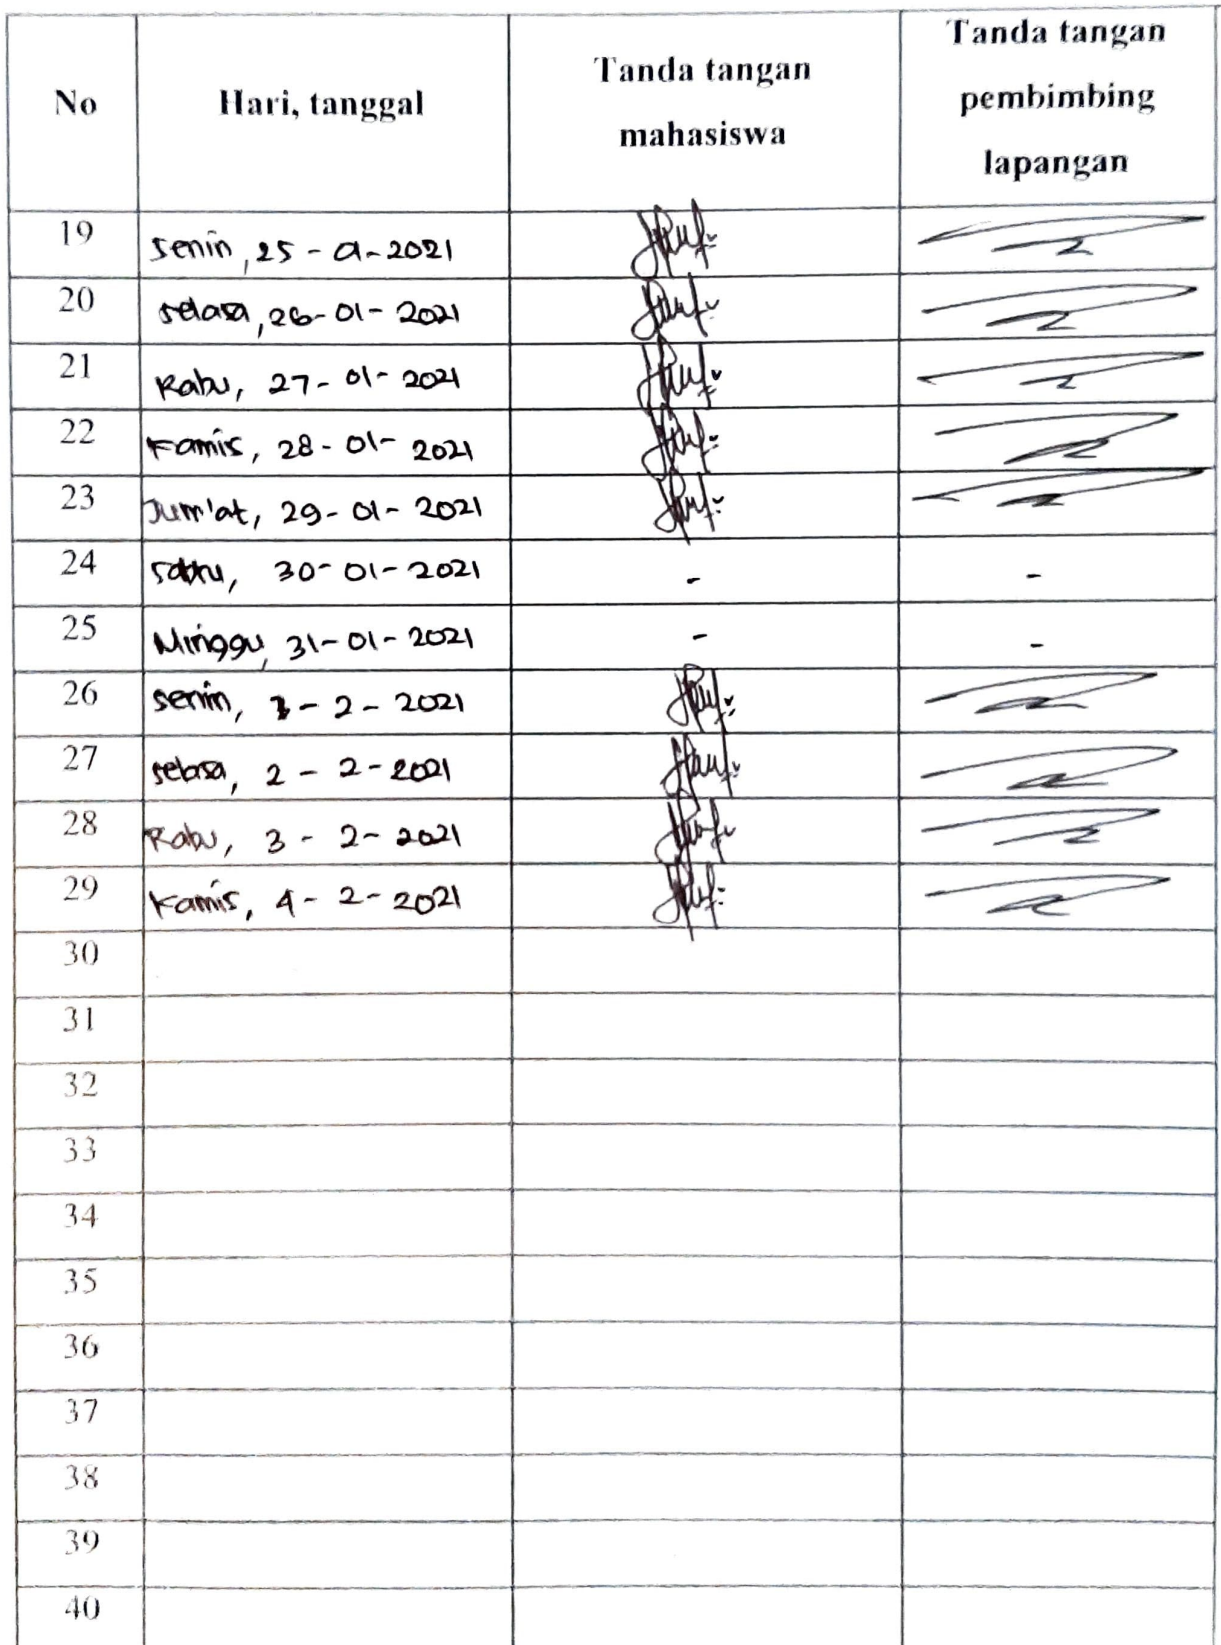 No Hari, tanggal Tanda tangan mahasiswa Tanda tangan pembimbing lapangan
19 Senin, 25 - 01 - 2021
20 selasa, 26 - 01 - 2021
21 Rabu, 27 - 01 - 2021
22 Kamis, 28 - 01 - 2021
23 Jum'at, 29 - 01 - 2021
24 sabtu, 30 - 01 - 2021 - -
25 Minggu, 31 - 01 - 2021 - -
26 senin, 1 - 2 - 2021
27 selasa, 2 - 2 - 2021
28 Rabu, 3 - 2 - 2021
29 Kamis, 4 - 2 - 2021
30
31
32
33
34
35
36
37
38
39
40